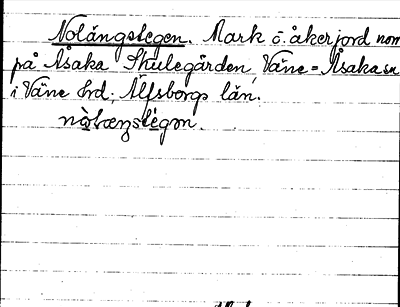 Nolängstegen. Mark o. åkerjord nom
på Åsaka Skulegården, Väne-Åsaka sn
i Väne hd; Älfsborgs län.